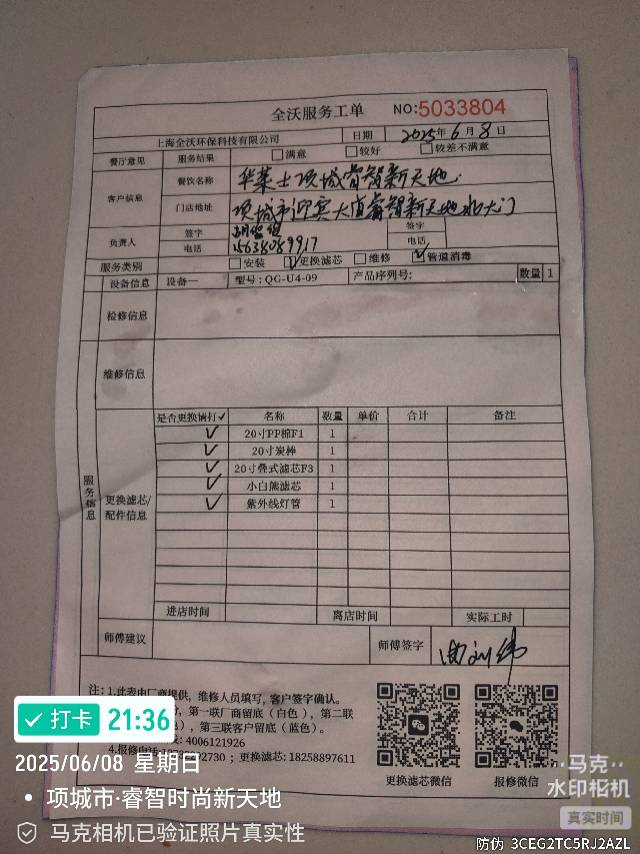 全沃服务工单 NO:5033804
上海全沃环保科技有限公司 日期 2025年6月8日
餐厅意见 服务结果 满意 较好 较差不满意
客户信息
餐饮名称 华莱士项城睿智新天地
门店地址 项城市迎宾大道睿智新天地北大门
负责人 签字 签字
电话 15638089917 电话
服务类别 安装 ✓更换滤芯 维修 ✓管道消毒
设备信息 设备一 型号:QG-U4-09 产品序列号: 数量 1
检修信息
维修信息
服务信息
更换滤芯/
配件信息
是否更换请打✓ 名称 数量 单价 合计 备注
✓ 20寸PP棉F1 1
✓ 20寸炭棒 1
✓ 20寸叠式滤芯F3 1
✓ 小白熊滤芯 1
✓ 紫外线灯管 1
进店时间 离店时间 实际工时
师傅建议 师傅签字
注:1.此表由厂商提供,维修人员填写,客户签字确认。
第一联厂商留底(白色),第二联
第三联客户留底(蓝色)。
4006121926
4.报修电话 2730;更换滤芯:18258897611
更换滤芯微信 报修微信
打卡 21:36
2025/06/08 星期日
项城市·睿智时尚新天地
马克相机已验证照片真实性
马克
水印相机
真实时间
防伪 3CEG2TC5RJ2AZL